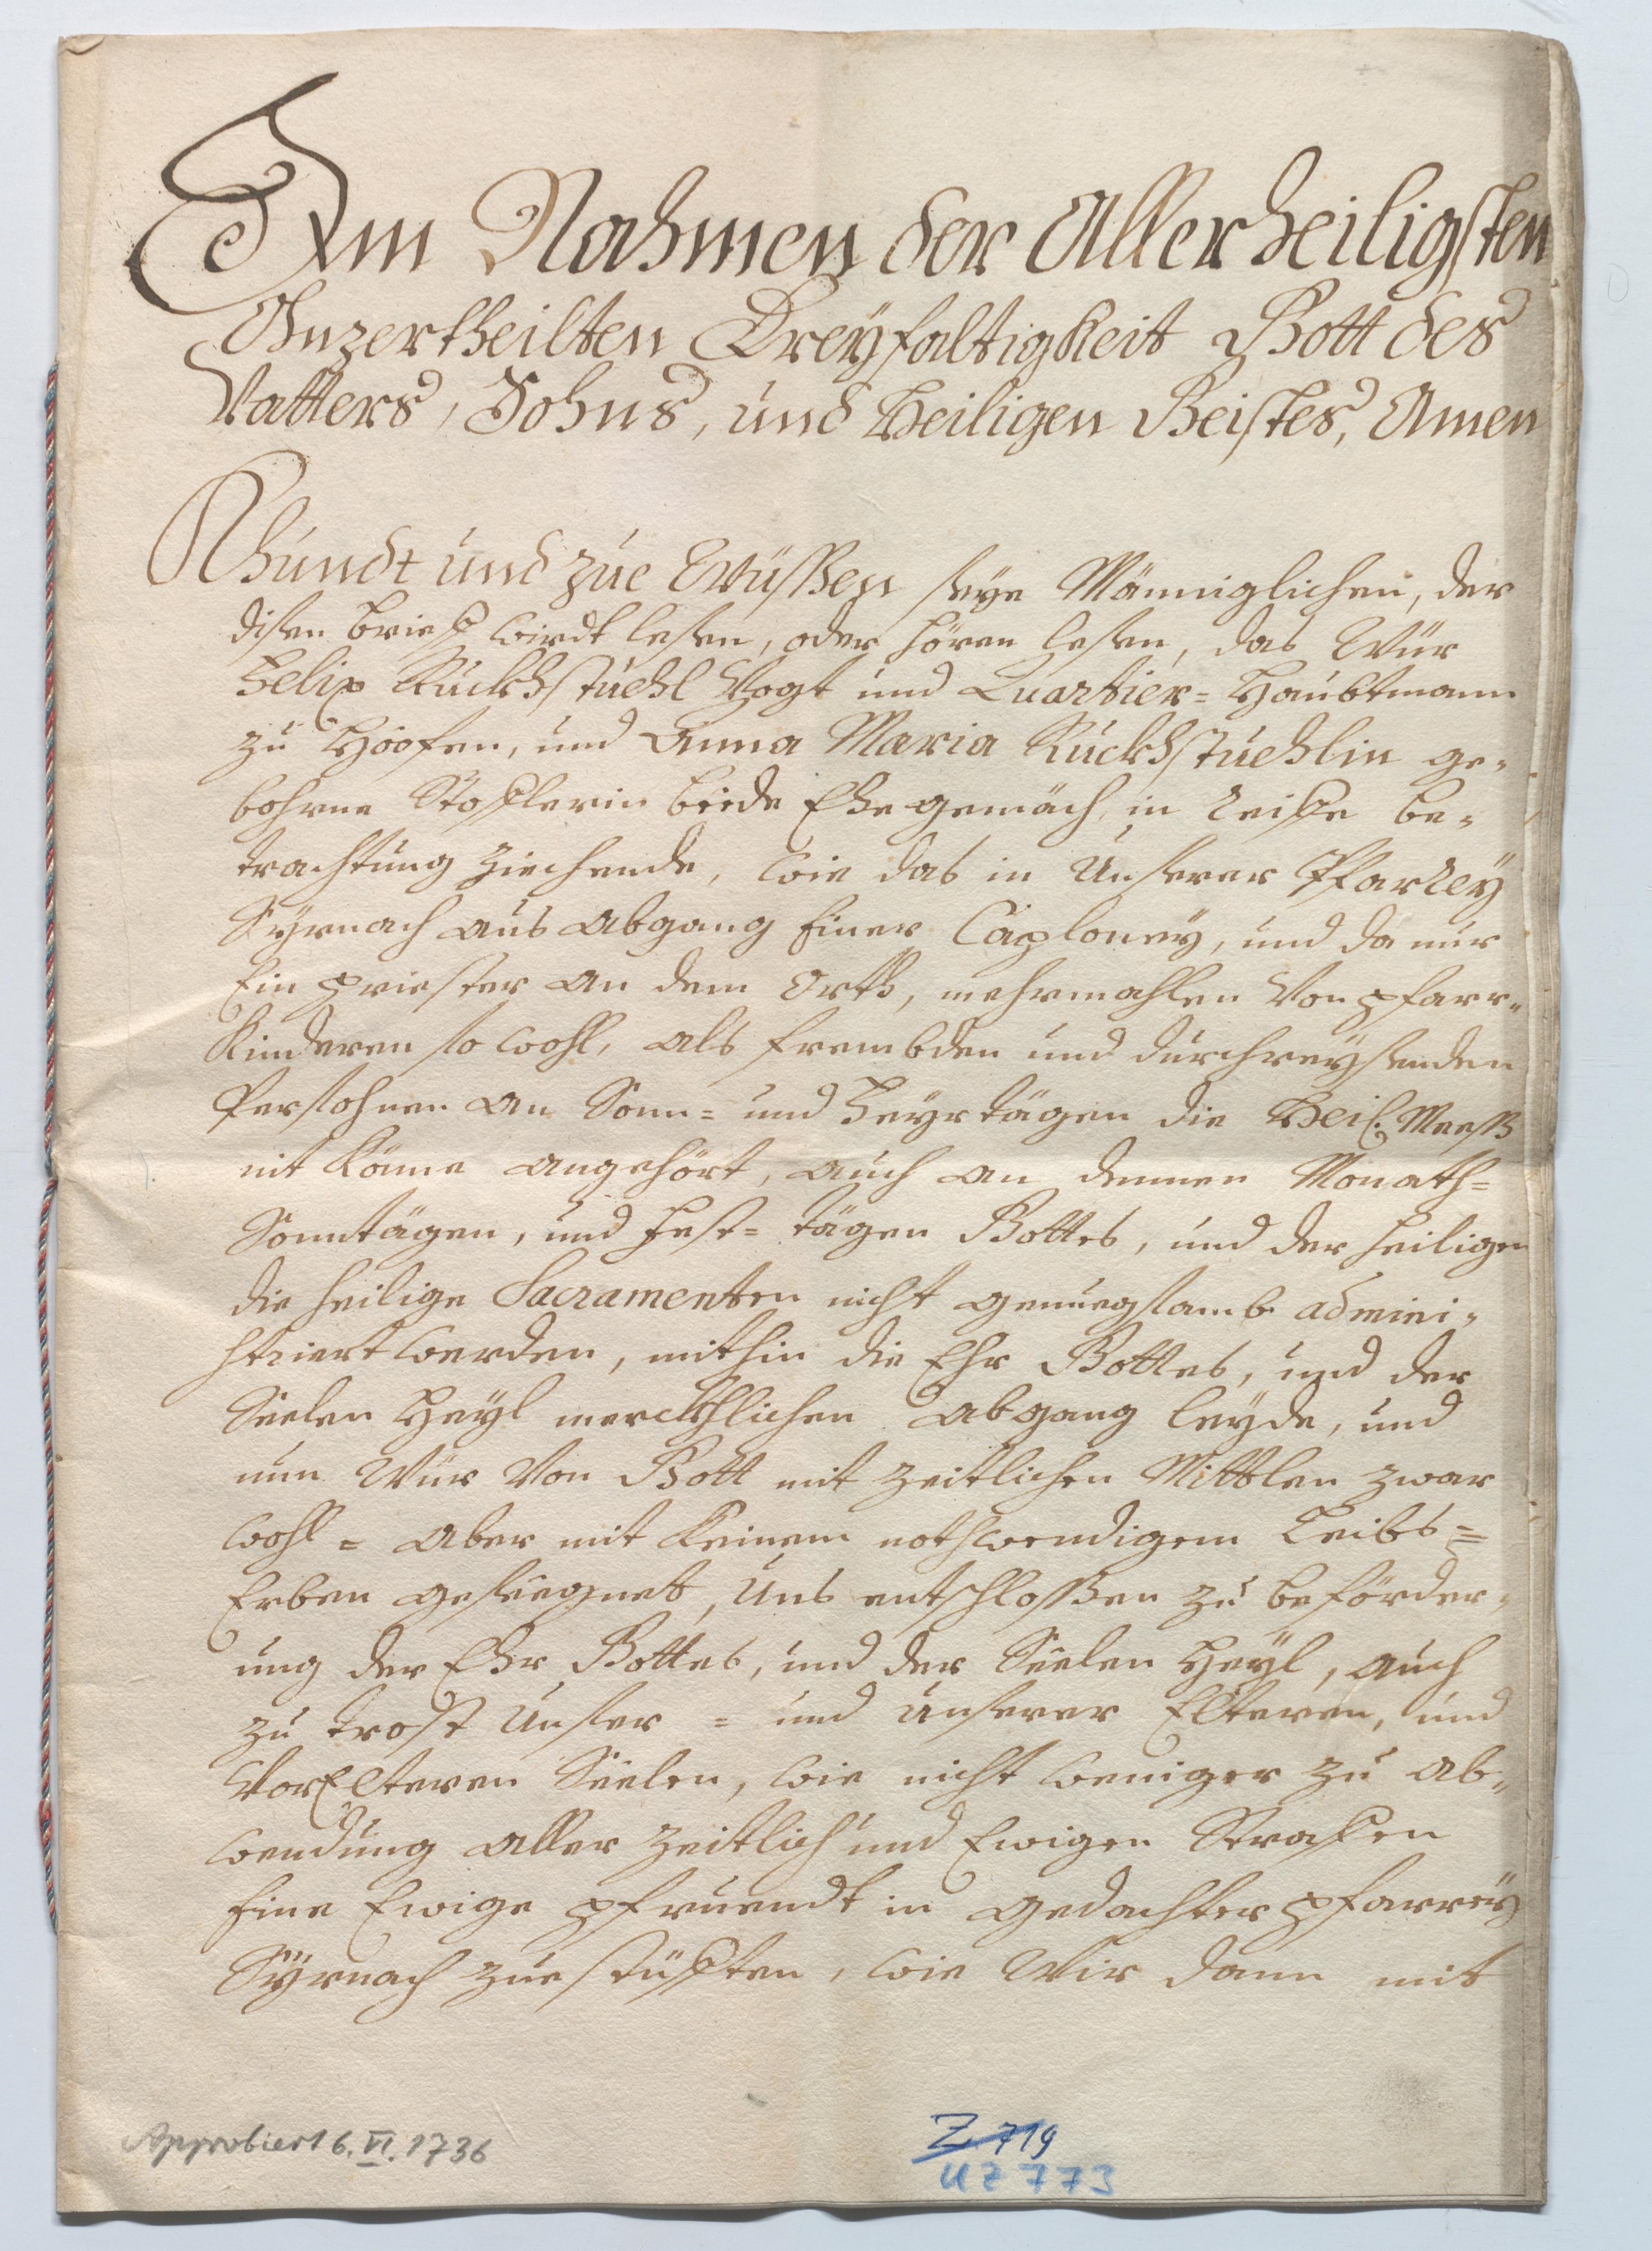 Im Nahmen der Allerheiligsten
Unzertheilten Dreyfaltigkeit Gott des
Vatters, Sohns, und Heiligen Geistes, Amen
Khundt und zue Wüssen seye Männiglichen, der
disen brieff wirdt lesen, oder hören lesen, das Wür
Felix Ruckhstuehl Vogt und Quartier= Haubtmann
zu Höofen, und Anna Maria Ruckhstuehlin ge-
bohrne Stofflerin beede Ehegemäch, in reiffe be-
trachtung ziechende, wie das in Unserer Pfarrey
Syrnach aus abgang Einer Caploney, und da nur
Ein priester an dem Orth, mehrmahlen Von pfarr-
Kinderen so wohl, als frembden und durchreysenden
Persohnen an Sonn= und Feyrtägen die Heil. Meeß
nit könne angehört, auch an dennen Monath=
Sonntägen, und Fest= tägen Gottes, und der Heiligen
die heilige Sacramenten nicht genuegsamb admini-
striert werden, mithin die Ehr Gottes, und der
Seelen Heyl merckhlichen abgang leyde, und
nun Wür Von Gott mit zeitlichen Mittlen zwar
wohl = aber mit keinem nothwendigem Leibs=
Erben geseegnet, Uns entschlossen zu beförder-
ung der Ehr Gottes, und der Seelen Heyl, auch
zu trost Unser = und Unserer Elteren, und
VorElteren Seelen, wie nicht weniger zu ab-
wendung aller zeitlich und Ewigen Straffen
Eine Ewige pfruendt in gedachter pfarrey
Syrnach zue stüfften, wie Wir dann mit
Approbiert 6. VI. 1736
Z 719
UZ 773